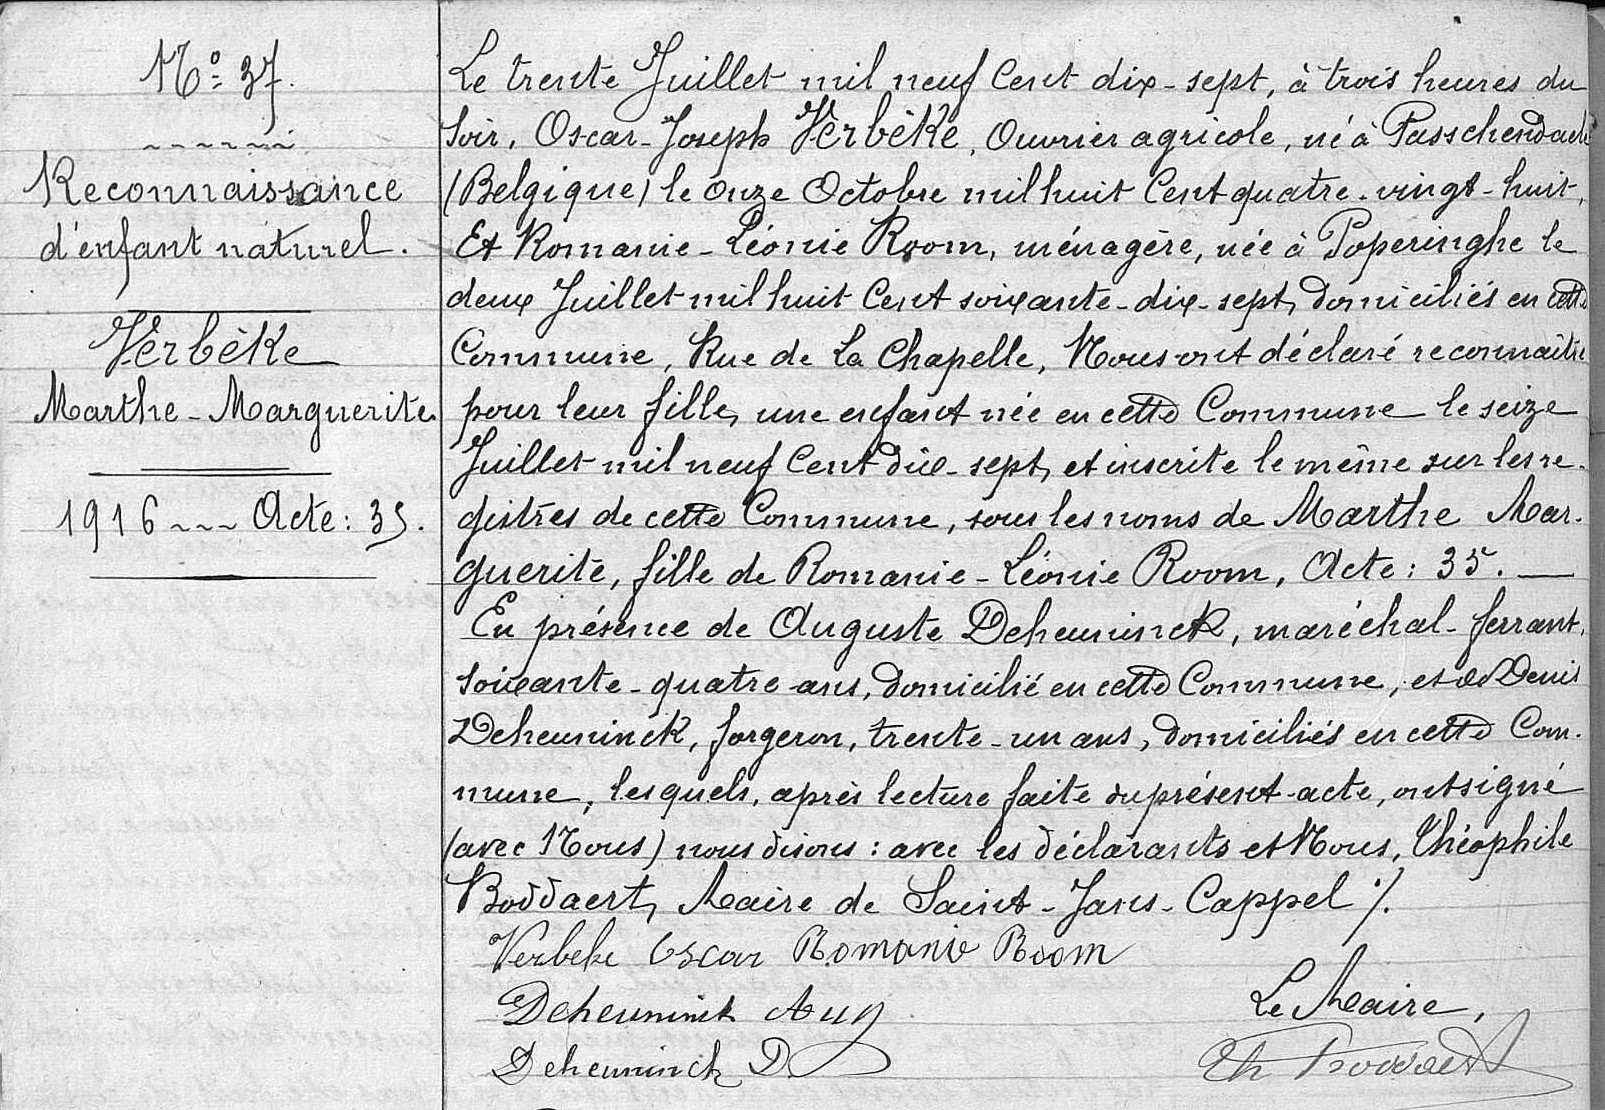 N° 37.
Reconnaissance
d'enfant naturel.
Verbèke
Marthe-Marguerite.
1916 --- Acte : 35.
Le trente Juillet mil neuf Cent dix-sept, à trois heures du
soir, Oscar-Joseph Verbèke, Ouvrier agricole, né à Passchendaele
(Belgique) le onze Octobre mil huit Cent quatre-vingt-huit,
Et Romanie-Léonie Room, ménagère, née à Poperinghe le
deux Juillet mil huit Cent soixante-dix-sept, domiciliés en cette
Commune, Rue de La Chapelle, Nous ont déclaré reconnaître
pour leur fille, une enfant née en cette Commune le seize
Juillet mil neuf Cent dix-sept, et inscrite le même sur les re-
gistres de cette Commune, sous les noms de Marthe Mar-
guerite, fille de Romanie-Léonie Room, Acte : 35. —
En présence de Auguste Deheuninck, maréchal-ferrant,
soixante-quatre ans, domicilié en cette Commune, et de Denis
Deheuninck, forgeron, trente-un ans, domiciliés en cette Com-
mune, lesquels, après lecture faite du présent acte, ont signé
(avec Nous) nous disons : avec les déclarants et Nous, Théophile
Boddaert, Maire de Saint-Jans-Cappel ./.
Verbeke Oscar Romanie Room
Deheuninck Aug
Le Maire,
Deheuninck D
Th Boddaert